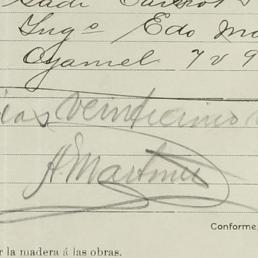 Ing.º Edo
Oyamel 7 v 9
veinticinco
A. Martinez
Conforme
r la madera á las obras.